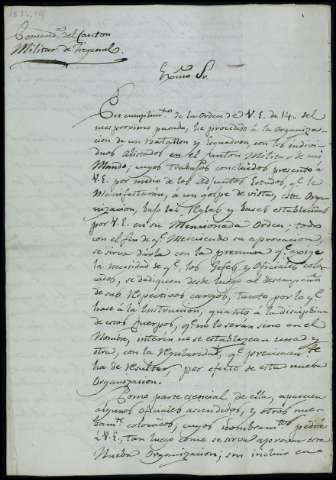 Comand.ª del Canton
Militar de
Exmo Sr.
En cumplim.to de la Orden de V.E. de 14 del
mes proximo pasado, he procedido à la organiza-
cion de un Batallon y Esquadron con los indivi-
duos alistados en el Canton Militar de mi
Mando, cuyos trabajos concluidos presento à
V.E. por medio de los adjuntos Estados, q.e le
manifestaran, à un golpe de vista, esta Orga-
nizacion, bajo las Reglas y bases establecidas
por V.E. en su mencionada Orden; todo
con el fin de q.e mereciendo su aprovacion,
se sirva darla con la premura q.e exige
la necesidad de q.e los Gefes y Oficiales
se dediquen desde luego al desempeño
de sus respectivos cargos, tanto por lo q.e
hace à la Instruccion, quanto à la disciplina
de estos Cuerpos, q.e no lo seran sino en el
Nombre, interin no se establezcan una y
otra, con la regularidad, q.e precisam.te
ha de resultar por efecto de esta nueva
Organizacion.
Como parte esencial de ella, aparecen
algunos oficiales ascendidos, y otros nue-
bam.te colocados, cuyos nombram.tos pedire
à V.E. tan luego como se sirva aprovar esta
Nueva Organizacion;